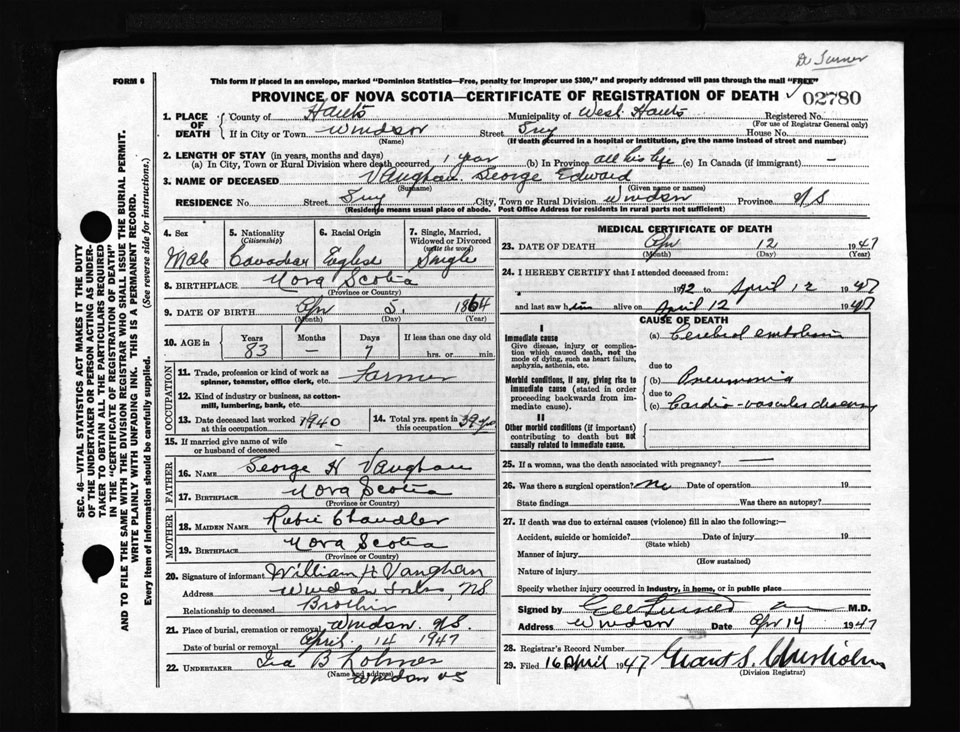 Dr Turner
FORM 6
This form if placed in an envelope, marked "Dominion Statistics—Free, penalty for improper use $300," and properly addressed will pass through the mail "FREE"
PROVINCE OF NOVA SCOTIA—CERTIFICATE OF REGISTRATION OF DEATH
02780
1. PLACE OF DEATH
County of Hants Municipality of West Hants Registered No.
(For use of Registrar General only)
If in City or Town Windsor Street House No.
(Name) (If death occurred in a hospital or institution, give the name instead of street and number)
2. LENGTH OF STAY (in years, months and days)
(a) In City, Town or Rural Division where death occurred 1 year (b) In Province all his life (c) In Canada (if immigrant) —
3. NAME OF DECEASED Vaughan George Edward
(Surname) (Given name or names)
RESIDENCE No. Street City, Town or Rural Division Windsor Province NS
(Residence means usual place of abode. Post Office Address for residents in rural parts not sufficient)
SEC. 46—VITAL STATISTICS ACT MAKES IT THE DUTY
OF THE UNDERTAKER OR PERSON ACTING AS UNDER-
TAKER TO OBTAIN ALL THE PARTICULARS REQUIRED
IN THE "CERTIFICATE OF REGISTRATION OF DEATH"
AND TO FILE THE SAME WITH THE DIVISION REGISTRAR WHO SHALL ISSUE THE BURIAL PERMIT.
WRITE PLAINLY WITH UNFADING INK. THIS IS A PERMANENT RECORD.
Every item of information should be carefully supplied. (See reverse side for instructions.)
4. Sex 5. Nationality (Citizenship) 6. Racial Origin 7. Single, Married, Widowed or Divorced (write the word)
Male Canadian English Single
8. BIRTHPLACE Nova Scotia
(Province or Country)
9. DATE OF BIRTH Apr 5. 1864
(Month) (Day) (Year)
10. AGE in Years Months Days If less than one day old
83 — 7 hrs. or min.
OCCUPATION
11. Trade, profession or kind of work as spinner, teamster, office clerk, etc. Farmer
12. Kind of industry or business, as cotton-mill, lumbering, bank, etc.
13. Date deceased last worked at this occupation 1940
14. Total yrs. spent in this occupation 39 yrs
15. If married give name of wife or husband of deceased
FATHER
16. NAME George H Vaughan
17. BIRTHPLACE Nova Scotia
(Province or Country)
MOTHER
18. MAIDEN NAME Rubie Chandler
19. BIRTHPLACE Nova Scotia
(Province or Country)
20. Signature of informant William H Vaughan
Address Windsor NS
Relationship to deceased Brother
21. Place of burial, cremation or removal Windsor N.S.
Date of burial or removal April 14 1947
22. UNDERTAKER Ira B Lohnes
(Name and address) Windsor NS
MEDICAL CERTIFICATE OF DEATH
23. DATE OF DEATH Apr 12 1947
(Month) (Day) (Year)
24. I HEREBY CERTIFY that I attended deceased from:
to April 12 1947
and last saw him alive on April 12 1947
CAUSE OF DEATH
I
Immediate cause
Give disease, injury or complication which caused death, not the mode of dying, such as heart failure, asphyxia, asthenia, etc.
(a) Cerebral embolism
due to
Morbid conditions, if any, giving rise to immediate cause (stated in order proceeding backwards from immediate cause).
(b) Pneumonia
due to
(c) Cardio-vascular disease
II
Other morbid conditions (if important) contributing to death but not causally related to immediate cause.
25. If a woman, was the death associated with pregnancy? —
26. Was there a surgical operation? no Date of operation 19
State findings Was there an autopsy?
27. If death was due to external causes (violence) fill in also the following:—
Accident, suicide or homicide? Date of injury 19
(State which)
Manner of injury
(How sustained)
Nature of injury
Specify whether injury occurred in industry, in home, or in public place
Signed by M.D.
Address Windsor Date Apr 14 1947
28. Registrar's Record Number
29. Filed 16 April 1947 Grant S. Chisholm
(Division Registrar)